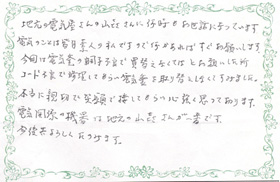 地元の電気屋さんの山岳さんに何時もお世話になっています
電気のことは皆目素人なんですので何かあればすぐお願いします
今回は電気釜の調子了で買替えなくてはとお願いした所
コード丁で修理してもらい電気釜を取り替えなくてすみました。
本当に親切で笑顔で接してもらい心強く思っております。
電気関係の機器は地元の山岳さんが一番です。
今後共よろしくたのみます。